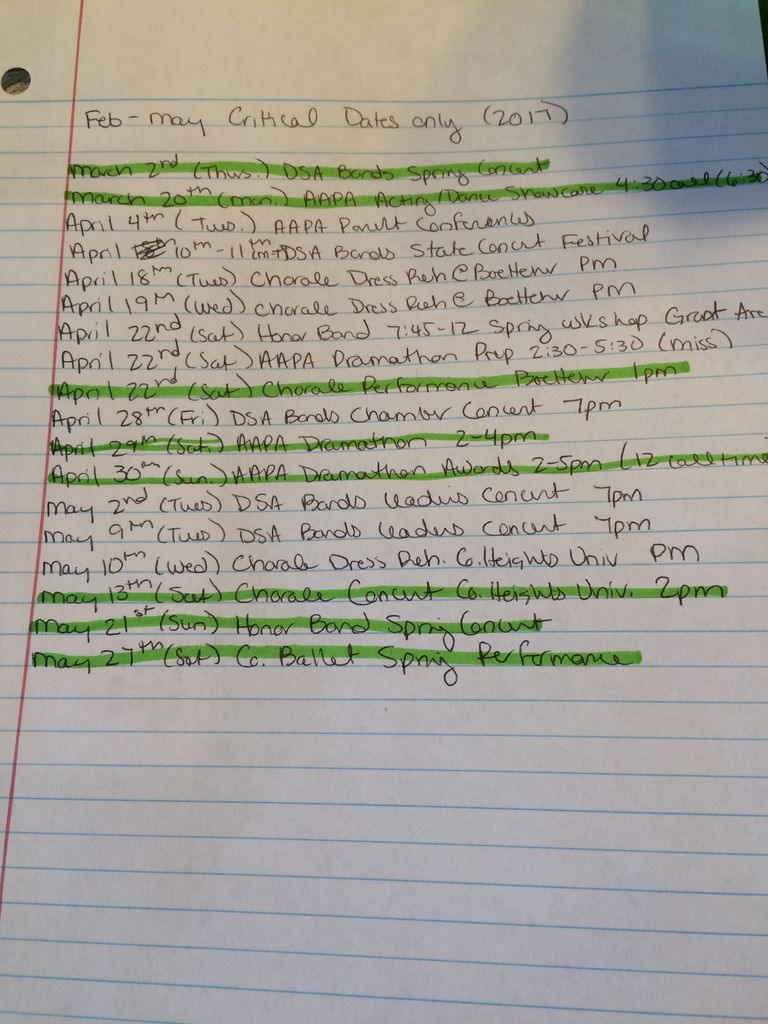 Feb - May Critical Dates only (2017)
March 2nd (Thurs.) DSA Bands Spring Concert
March 20th (Mon.) AAPA Acting/Dance Showcase 4:30 call (6:30
April 4th (Tues.) AAPA Parent Conferences
April 10th - 11th DSA Bands State Concert Festival
April 18th (Tues) Chorale Dress Reh @ Boettcher PM
April 19th (Wed) Chorale Dress Reh @ Boettcher PM
April 22nd (Sat) Honor Band 7:45-12 Spring wkshop Grant
April 22nd (Sat) AAPA Dramathon Prep 2:30-5:30 (miss)
April 22nd (Sat) Chorale Performance Boettcher 1pm
April 28th (Fri) DSA Bands Chamber Concert 7pm
April 29th (Sat.) AAPA Dramathon 2-4pm
April 30th (Sun.) AAPA Dramathon Awards 2-5pm (12 call time
May 2nd (Tues) DSA Bands Leaders Concert 7pm
May 9th (Tues) DSA Bands Leaders Concert 7pm
May 10th (Wed) Chorale Dress Reh. Co. Heights Univ PM
May 13th (Sat) Chorale Concert Co. Heights Univ. 2pm
May 21st (Sun) Honor Band Spring Concert
May 27th (Sat) Co. Ballet Spring Performance